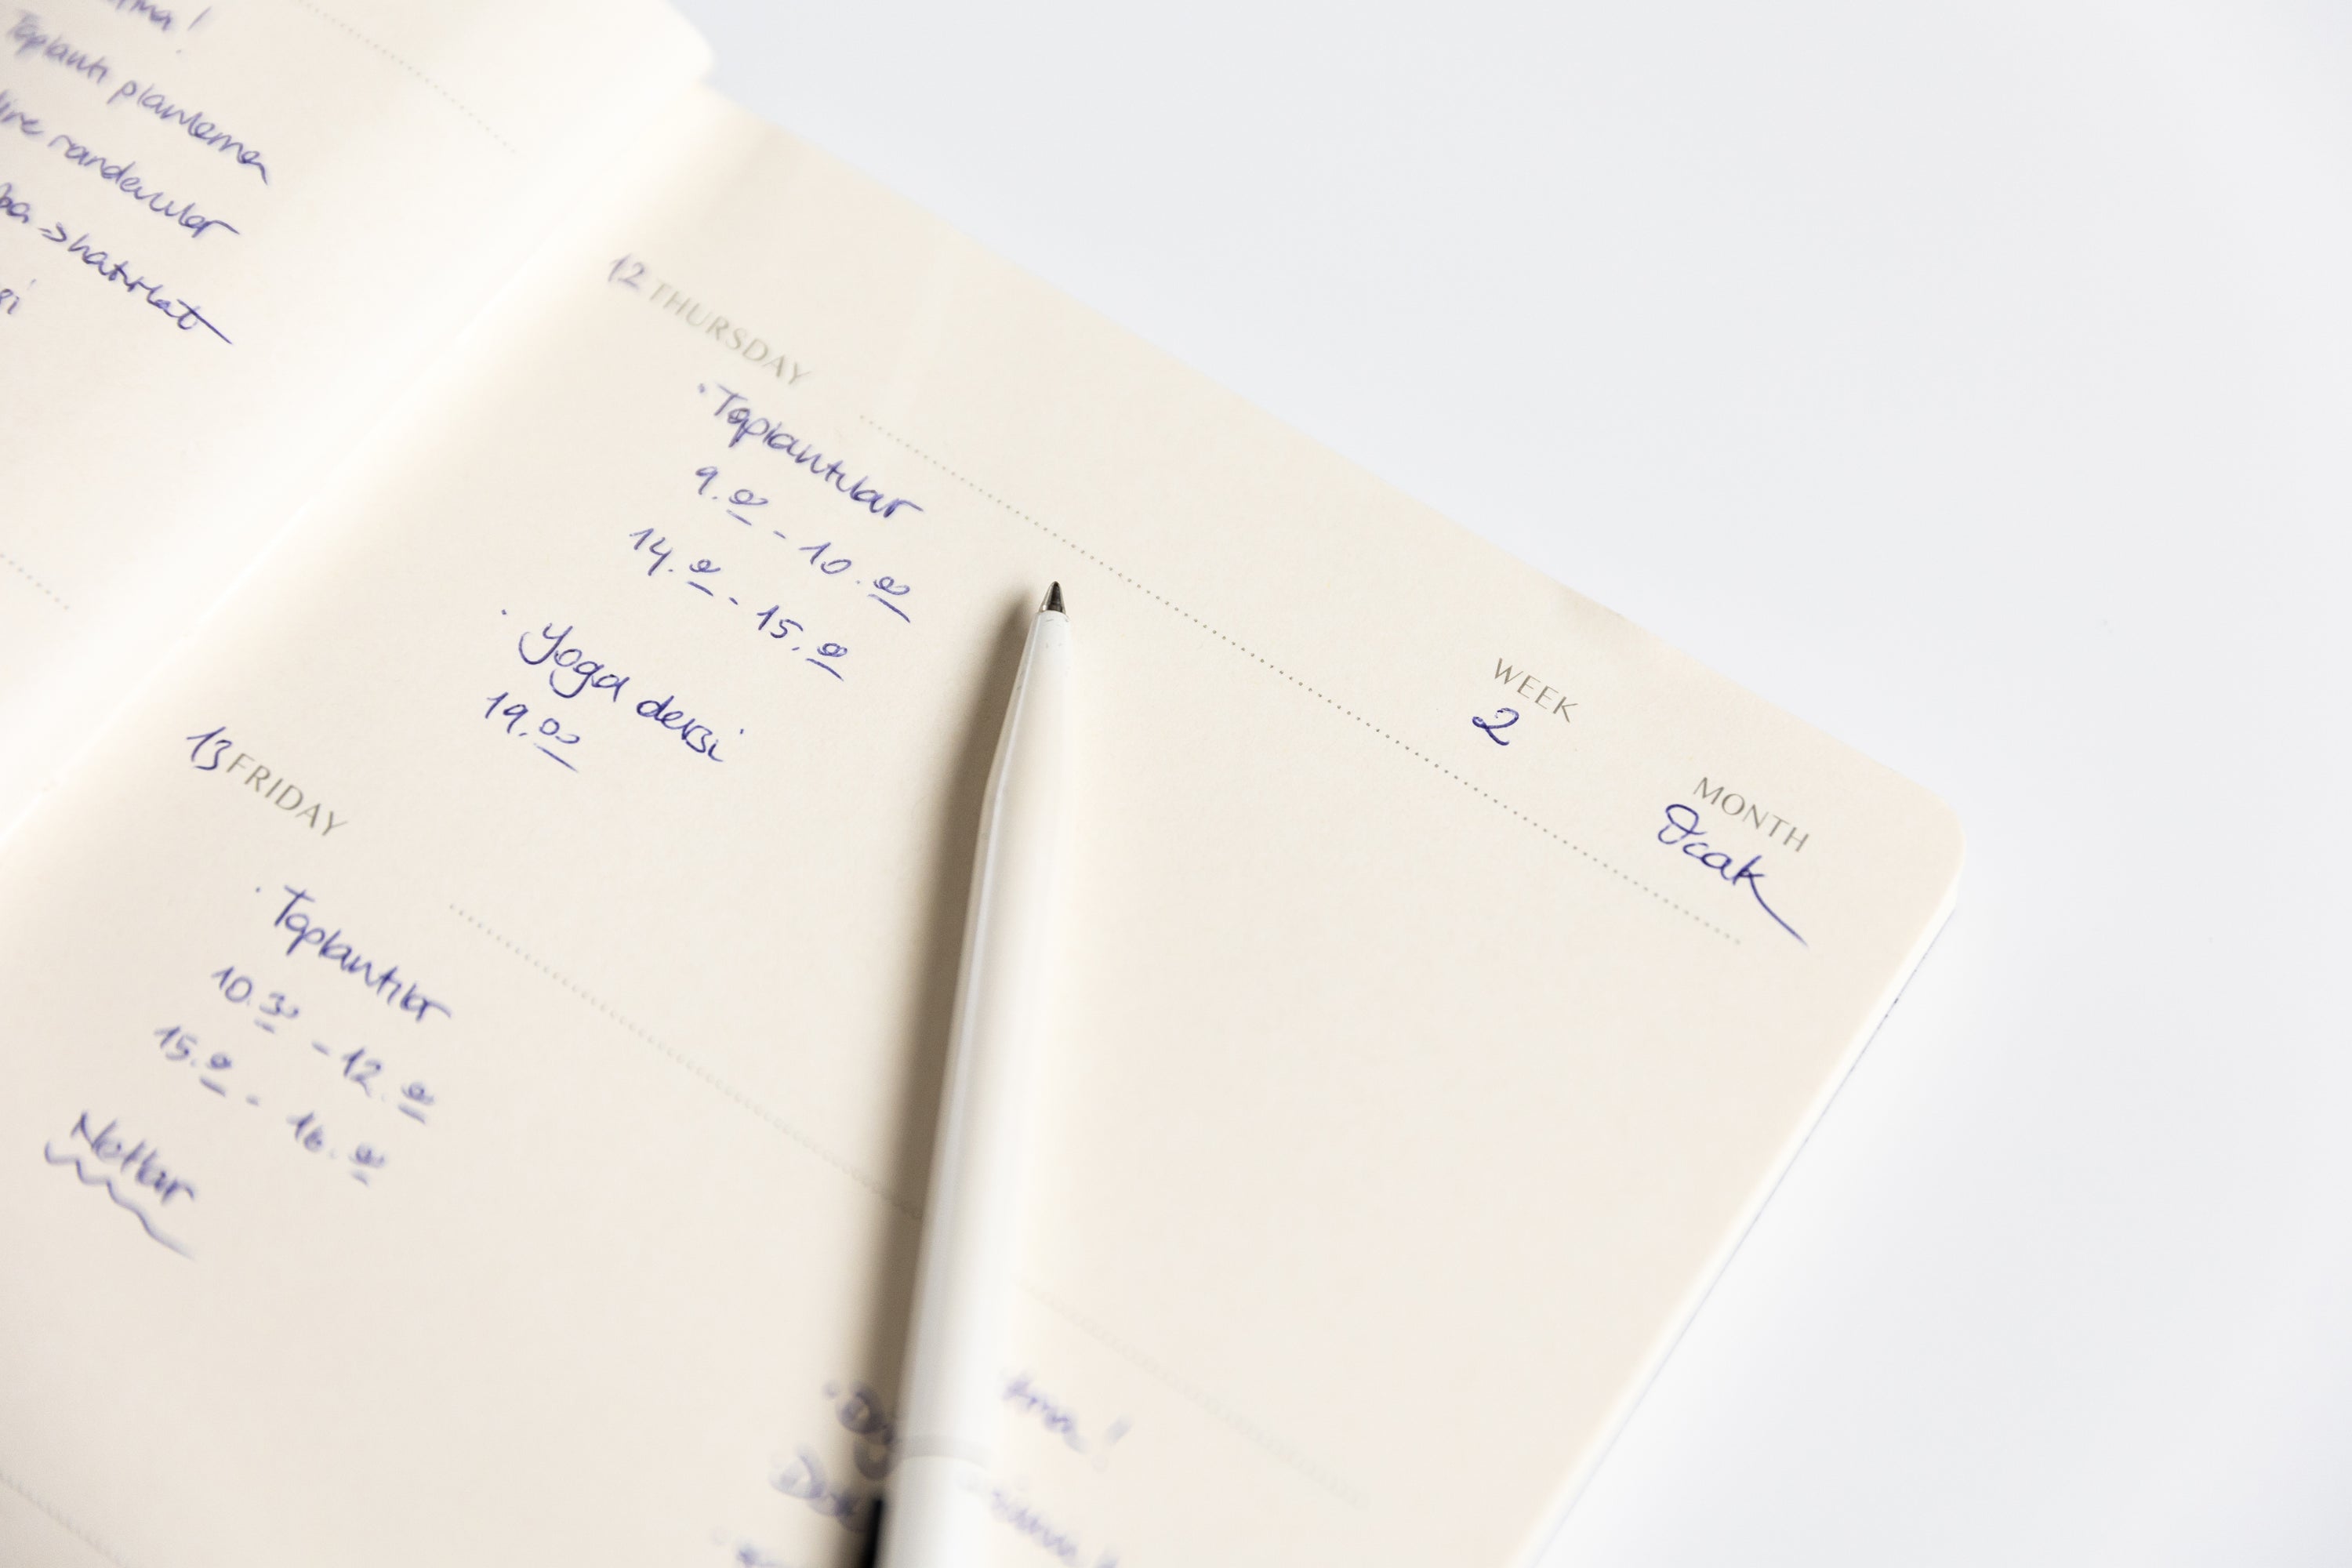 Toplantı planlama
randevular
->hatırlat
12 THURSDAY
· Toplantılar
9.00 - 10.00
14.00 - 15.00
· Yoga dersi
19.00
WEEK
2
MONTH
Ocak
13 FRIDAY
· Toplantılar
10.30 - 12.00
15.00 - 16.00
Notlar